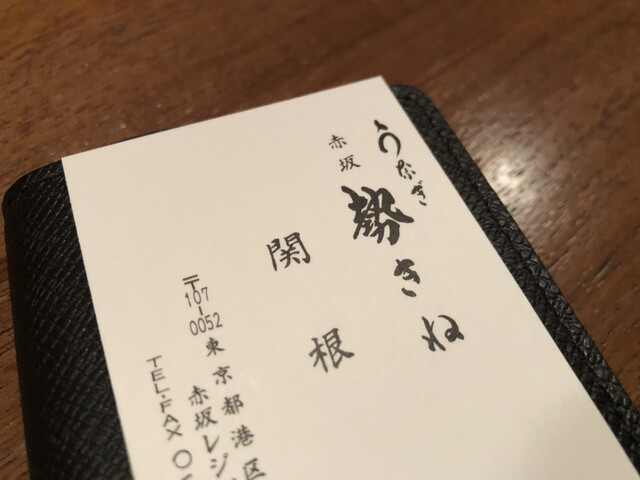 うなぎ
赤坂
勢きね
関根
〒107-0052 東京都港区
赤坂レジ
TEL・FAX 〇